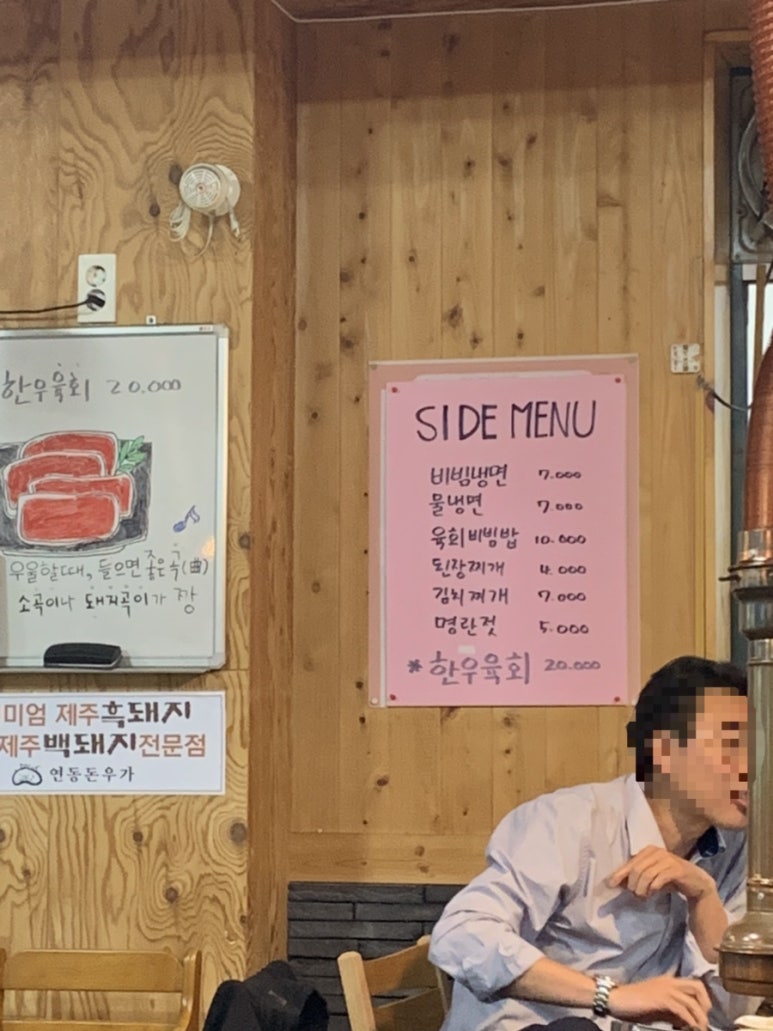 한우육회 20.000
우울할때, 들으면 좋은 곡(曲)
소곡이나 돼지곡이가 짱
미엄 제주흑돼지
제주백돼지전문점
연동돈우가
SIDE MENU
비빔냉면 7.000
물냉면 7.000
육회비빔밥 10.000
된장찌개 4.000
김치찌개 7.000
명란젓 5.000
* 한우육회 20.000